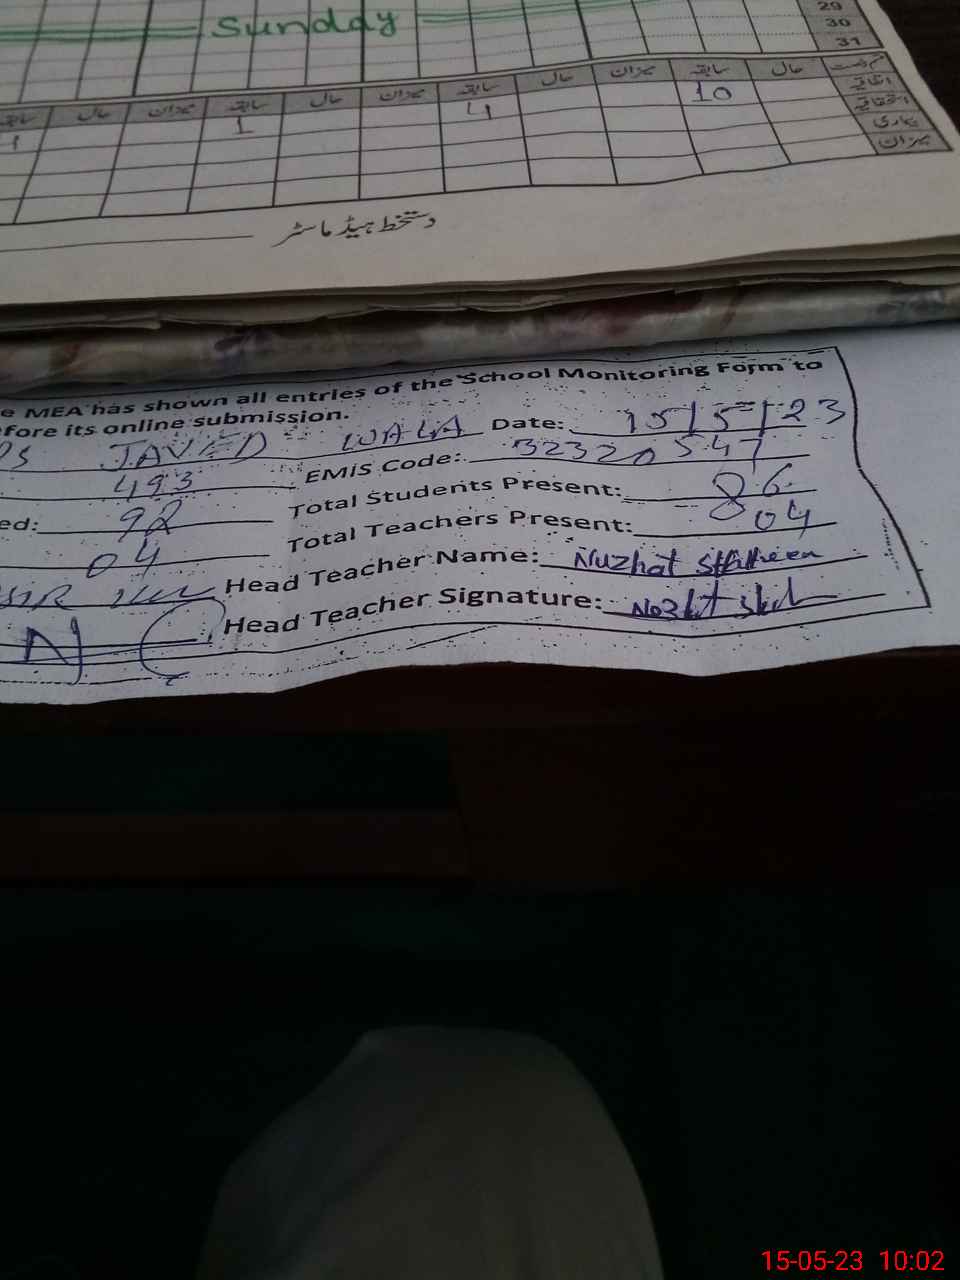 29
Sunday
30
31
سابقہ حال میزان سابقہ حال میزان سابقہ حال میزان سابقہ حال
1 4 10
اتفاقیہ
استحقاقیہ
بیماری
میزان
دستخط ہیڈ ماسٹر
e MEA has shown all entries of the School Monitoring Form to
efore its online submission.
PS JAVED WALA Date: 15/5/23
493 EMIS Code: 32320547
ed: 92 Total Students Present: 86
04 Total Teachers Present: 04
Head Teacher Name: Nuzhat Shaheen
Head Teacher Signature:
15-05-23 10:02